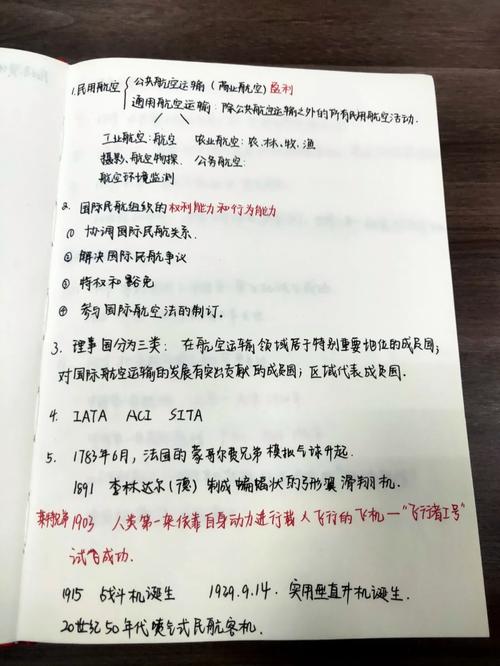 1.民用航空 { 公共航空运输（商业航空）盈利
通用航空运输：除公共航空运输之外的所有民用航空活动.
工业航空：航空 农业航空：农、林、牧、渔
摄影、航空物探、 公务航空：
航空环境监测
2. 国际民航组织的权利能力和行为能力
① 协调国际民航关系.
② 解决国际民航争议
③ 特权和豁免
④ 参与国际航空法的制订.
3. 理事国分为三类：在航空运输领域居于特别重要地位的成员国；
对国际航空运输的发展有突出贡献的成员国；区域代表成员国.
4. IATA ACI SITA
5. 1783年6月，法国的蒙哥尔费兄弟模拟气球升起.
1891 李林达尔（德）制成蝙蝠状的弓形翼滑翔机.
莱特兄弟1903 人类第一架依靠自身动力进行载人飞行的飞机—“飞行者工号”
试飞成功.
1915 战斗机诞生 1939.9.14. 实用垂直升机诞生.
20世纪50年代喷气式民航客机.